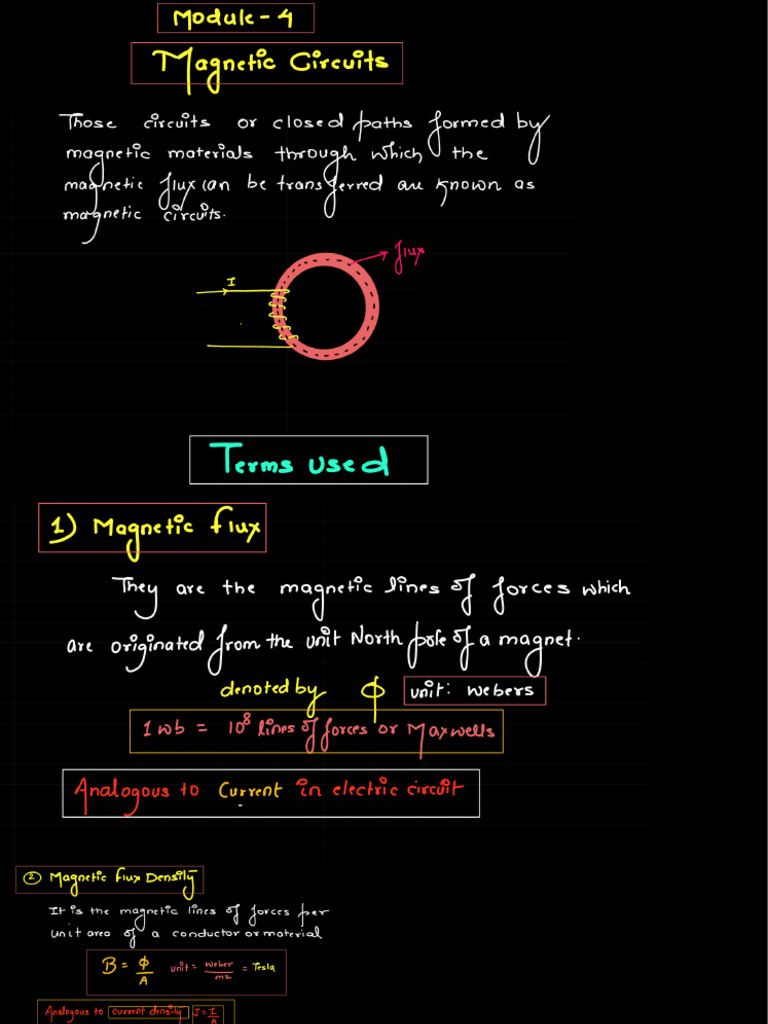 Module - 4
Magnetic Circuits
Those circuits or closed paths formed by
magnetic materials through which the
magnetic flux can be transferred are known as
magnetic circuits.
flux
I
Terms used
1) Magnetic flux
They are the magnetic lines of forces which
are originated from the unit North pole of a magnet.
denoted by ϕ unit: webers
1 wb = 10⁸ lines of forces or Maxwells
Analogous to Current in electric circuit
② Magnetic flux Density
It is the magnetic lines of forces per
unit area of a conductor or material
B = ϕ/A unit = weber/m2 = Tesla
Analogous to current density J = I/A